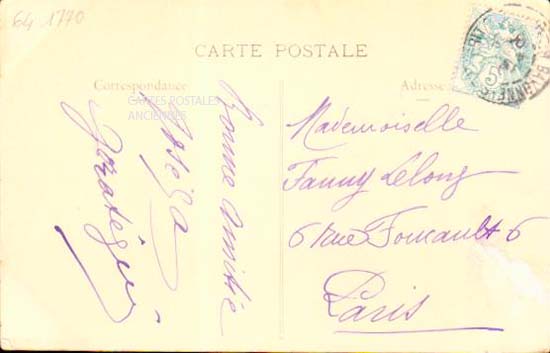 64 1770
CARTE POSTALE
Correspondance
Adresse
CARTES POSTALES
ANCIENNES
Bonne amitié
Mademoiselle
Fanny Lelong
6 rue Foucault 6
Paris
5c
BAYONNE